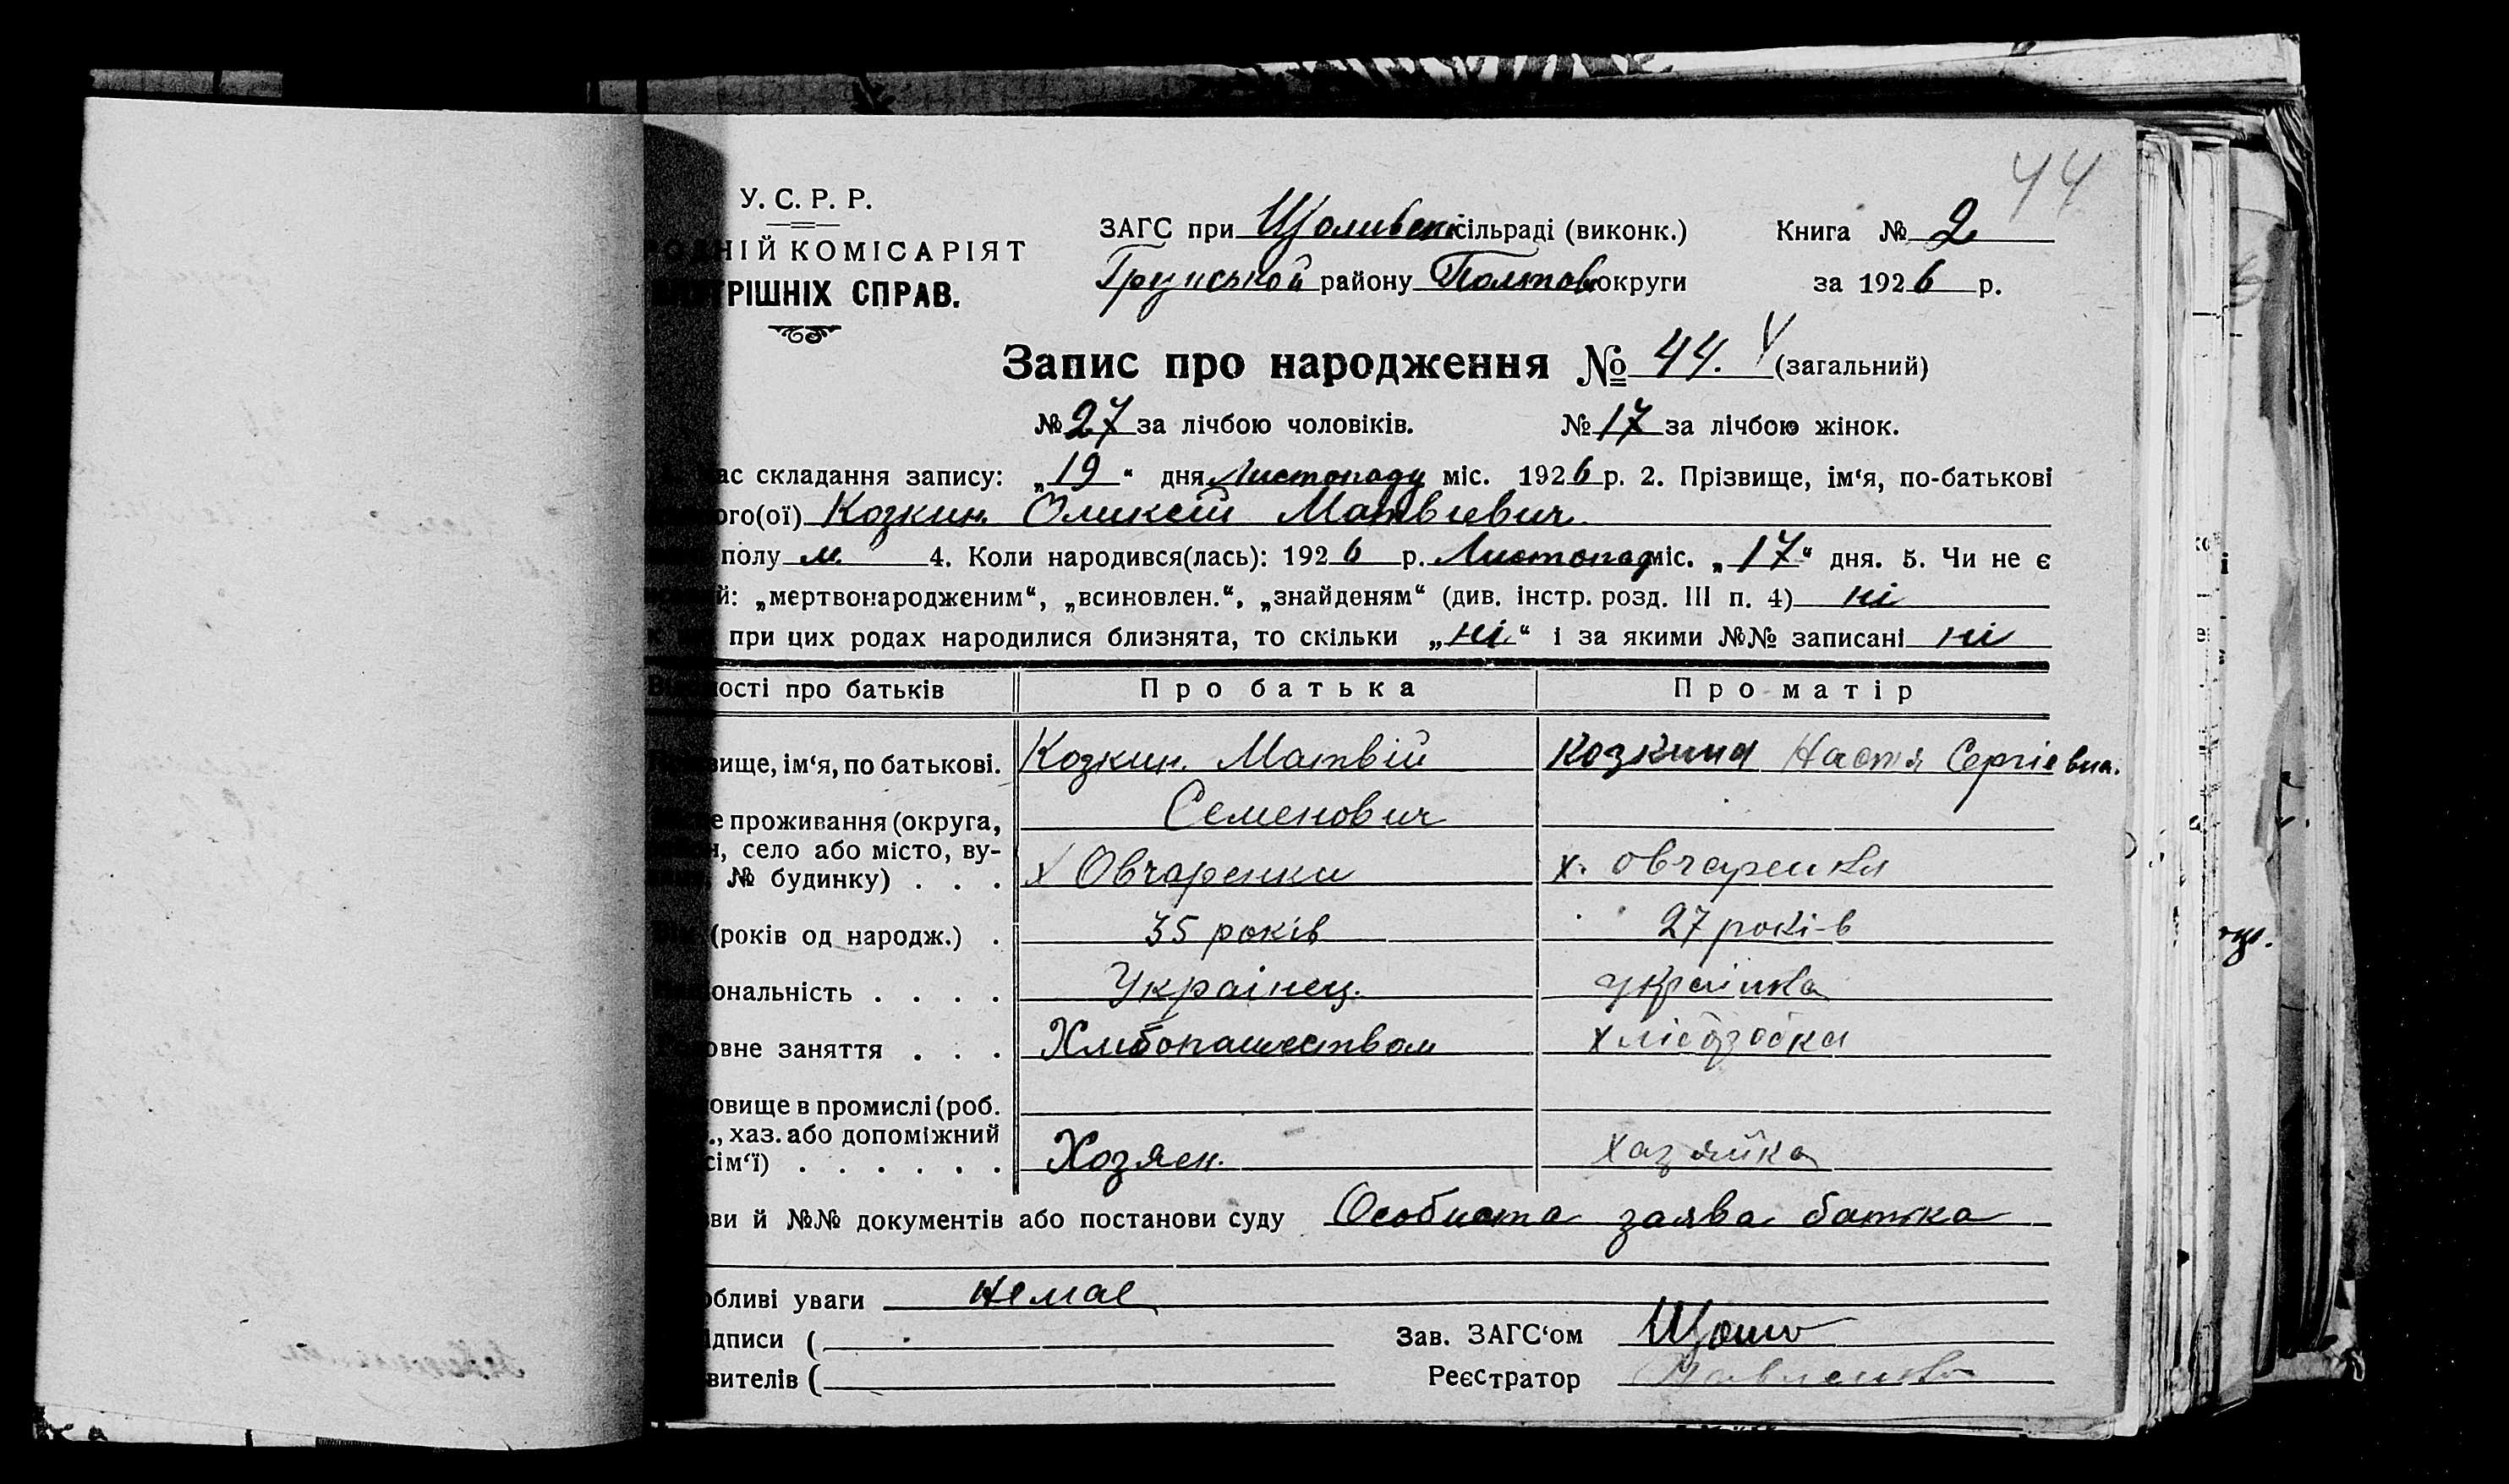 44
У. С. Р. Р.
ЗАГС при сільраді (виконк.) Книга № 2
НІЙ КОМІСАРІЯТ
Грунської району Полтов округи за 1926 р.
РІШНІХ СПРАВ.
Запис про народження № 44. V (загальний)
№ 27 за лічбою чоловіків. № 17 за лічбою жінок.
ас складання запису: „19“ дня Листопаду міс. 1926 р. 2. Прізвище, ім‘я, по-батькові
ого(ої) Козкин. Олексій Матвієвич
полу м. 4. Коли народився(лась): 1926 р. Листопад міс. „17“ дня. 5. Чи не є
й: „мертвонародженим“, „всиновлен.“, „знайденям“ (див. інстр. розд. III п. 4) ні
при цих родах народилися близнята, то скільки „ні“ і за якими №№ записані ні
ості про батьків Про батька Про матір
вище, ім‘я, по батькові. Козкин. Матвій Козкина Настя Сергієвна.
Семенович
е проживання (округа,
, село або місто, ву-
№ будинку) . . . х Овчаренки х. Овчаренка
(років од народж.) . 35 років 27 років
ональність . . . . Украінец. украінка
овне заняття . . . Хлібопашеством хліборобка
овище в промислі (роб.
., хаз. або допоміжний
сім‘ї) . . . . . . Хозяен. хазяйка
ви й №№ документів або постанови суду Особиста заява батька
обливі уваги немае
ідписи ( Зав. ЗАГС‘ом
вителів ( Реєстратор